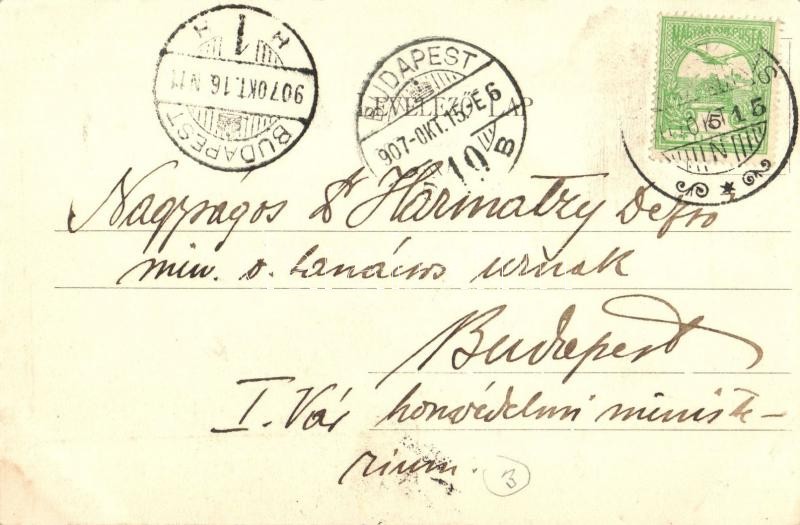 MAGYAR KIR. POSTA
BUDAPEST
907 OKT. 16. N 11
H 1 H
BUDAPEST
907-OKT.15.-E6
10 B
LEVELEZŐ-LAP
15
5
Nagyságos Dr Harmatzy Dezső
min. o. tanácsos urnak
Budapest
I. Vár honvédelmi ministe-
rium.
3